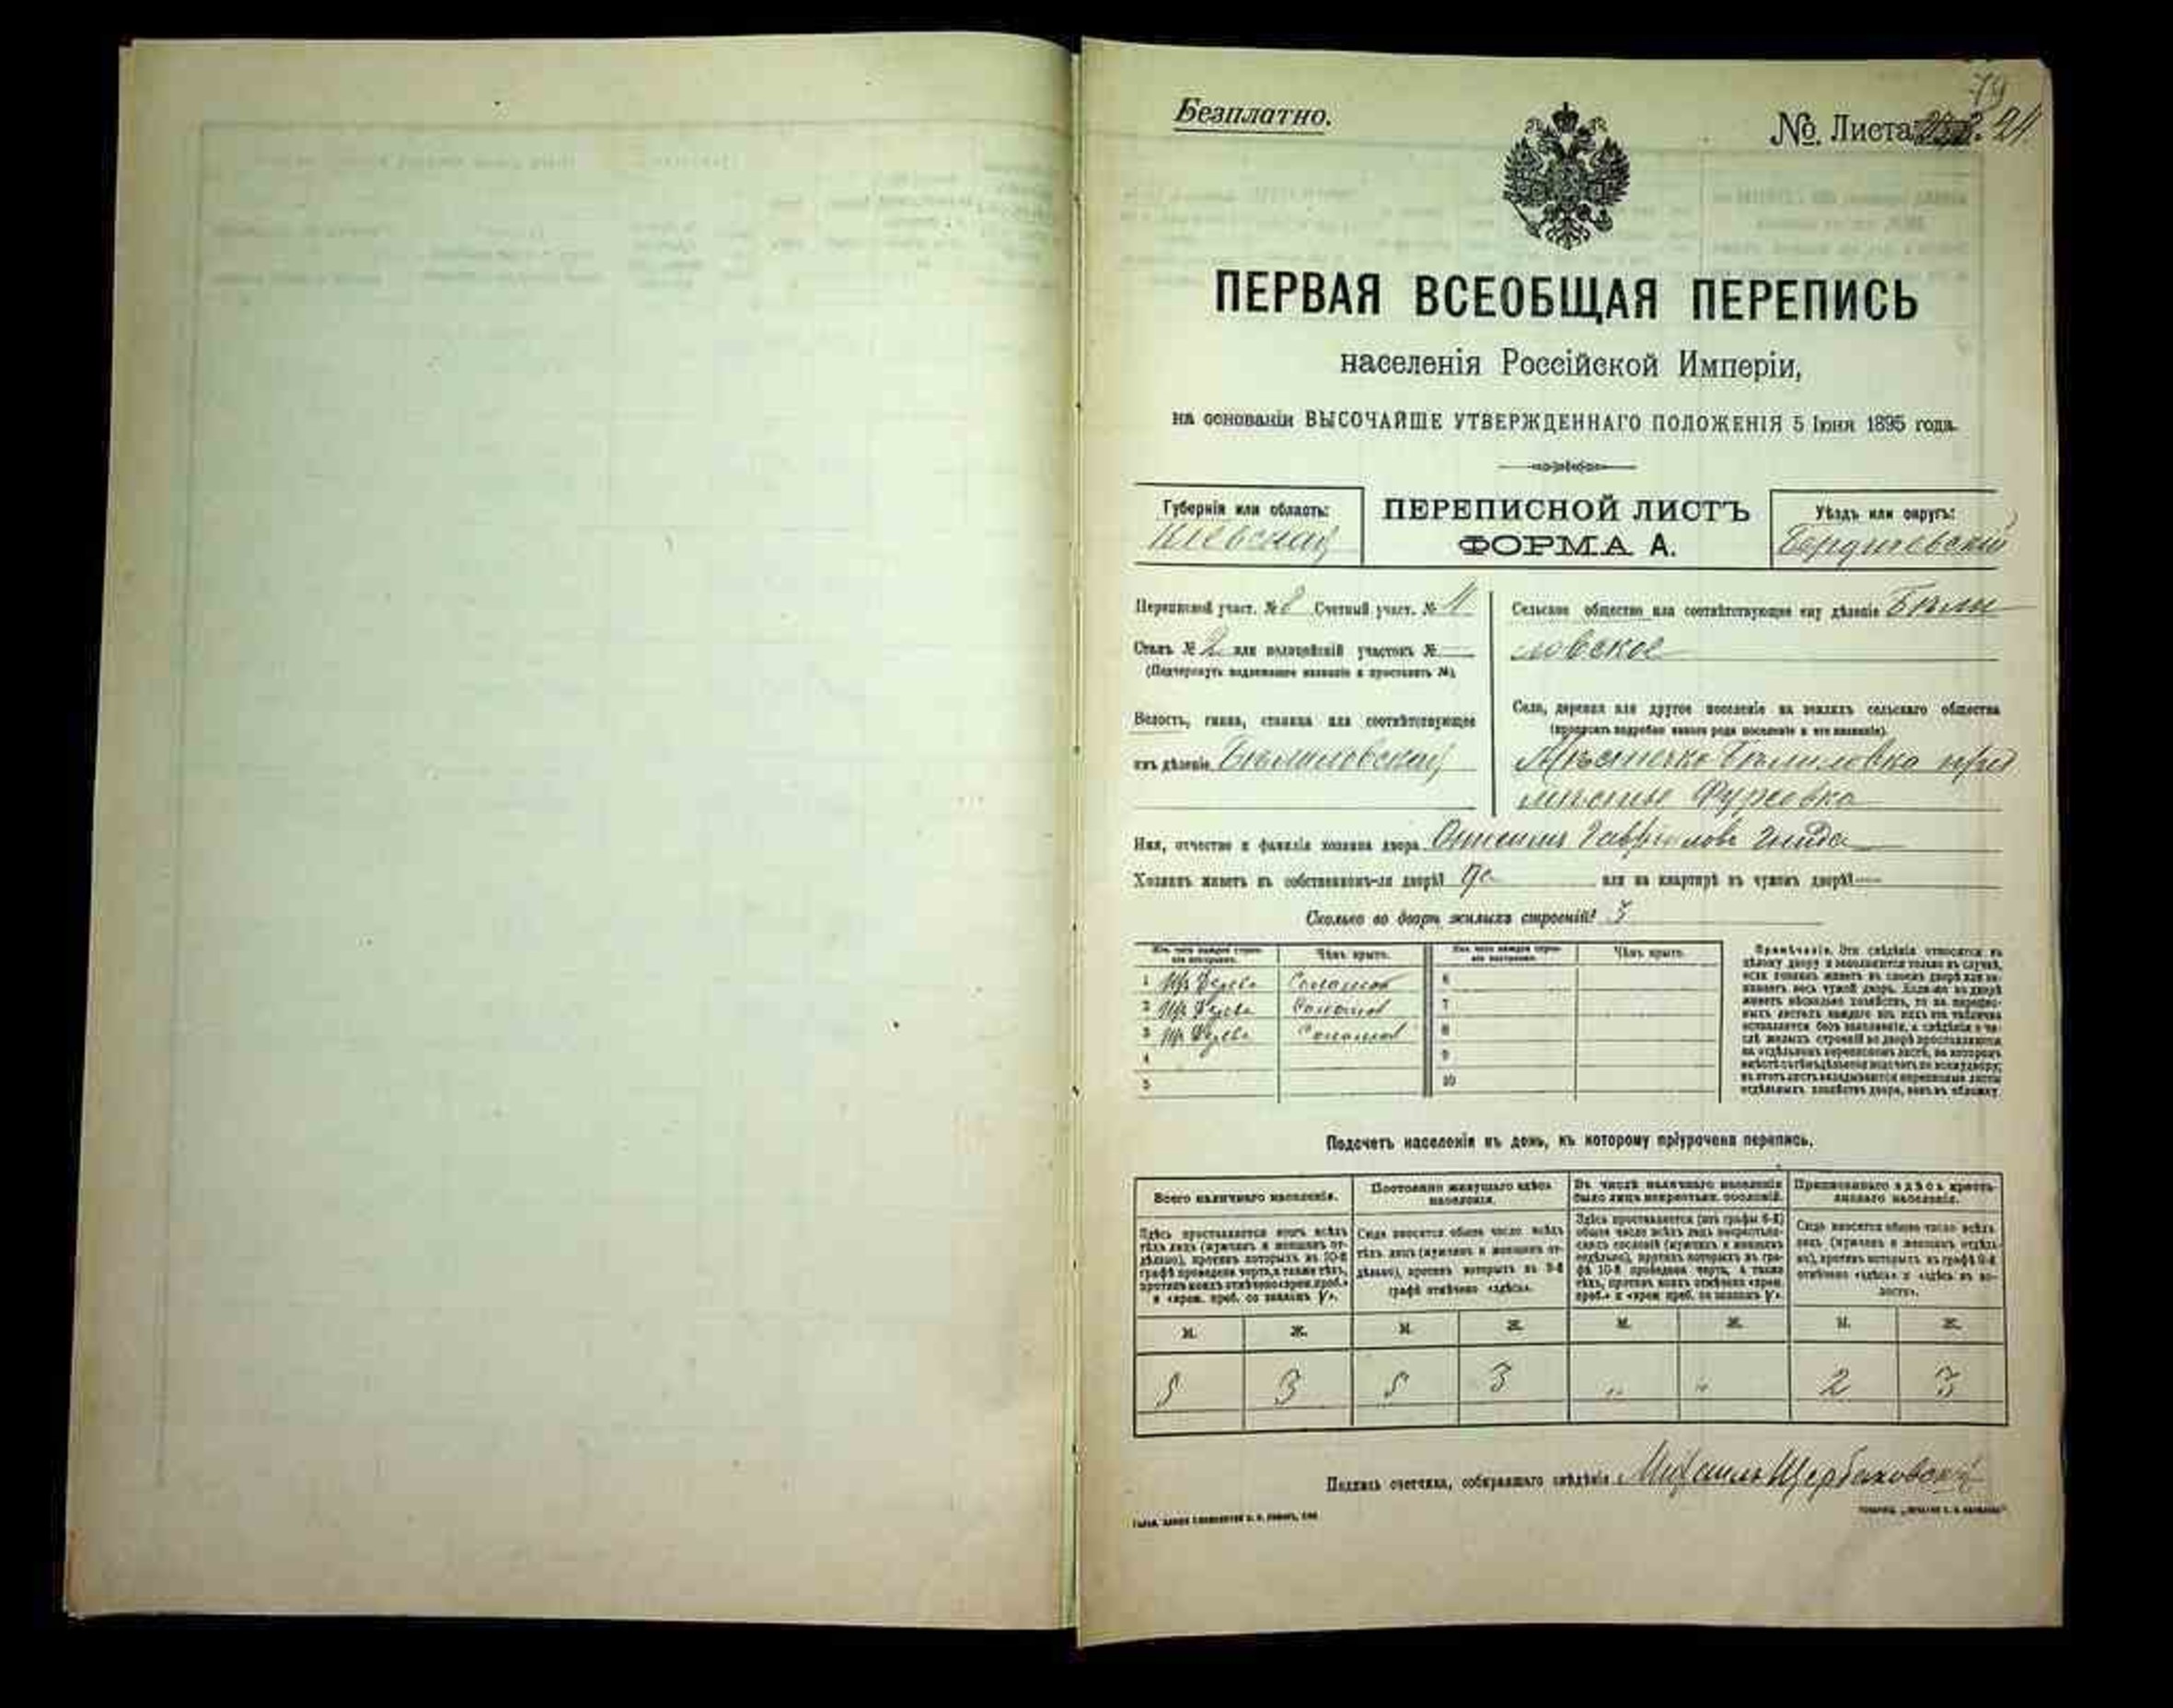 79
Безплатно.
№. Листа 24.
ПЕРВАЯ ВСЕОБЩАЯ ПЕРЕПИСЬ
населенія Россійской Имперіи,
на основаніи ВЫСОЧАЙШЕ УТВЕРЖДЕННАГО ПОЛОЖЕНІЯ 5 Іюня 1895 года.
Губернія или область:
Кіевская
ПЕРЕПИСНОЙ ЛИСТЪ
ФОРМА А.
Уѣздъ или округъ:
Бердичевскій
Переписной участ. № 8 Счетный участ. № 4
Станъ № 2 или полицейскій участокъ №
(Подчеркнуть подлежащее названіе и проставить №).
Волость, гмина, станица или соотвѣтствующее
имъ дѣленіе Бѣлиловская
Сельское общество или соотвѣтствующее ему дѣленіе Бѣли
ловское
Село, деревня или другое поселеніе на земляхъ сельскаго общества
(прописать подробно какого рода поселеніе и его названіе).
Мѣстечко Бѣлиловка пред
мѣстье
Имя, отчество и фамилія хозяина двора Гаврилова
Хозяинъ живетъ въ собственномъ-ли дворѣ? Да или на квартирѣ въ чужомъ дворѣ?
Сколько во дворѣ жилыхъ строеній? 3
Изъ чего каждое строеніе построено. Чѣмъ крыто. Изъ чего каждое строеніе построено. Чѣмъ крыто.
1 Изъ Дерева Соломой 6
2 Изъ Дерева Соломой 7
3 Изъ Дерева Соломой 8
4 9
5 10
Примѣчаніе. Эти свѣдѣнія относятся къ
цѣлому двору и заполняются только въ случаѣ,
если хозяинъ живетъ въ своемъ дворѣ или за-
нимаетъ весь чужой дворъ. Если-же во дворѣ
живетъ нѣсколько хозяйствъ, то на перепис-
ныхъ листахъ каждаго изъ нихъ эта табличка
оставляется безъ заполненія, а свѣдѣнія о чи-
слѣ жилыхъ строеній во дворѣ проставляются
на отдѣльномъ переписномъ листѣ, на которомъ
вмѣстѣ съ тѣмъ дѣлается подсчетъ по всему двору;
въ этотъ листъ вкладываются переписные листы
отдѣльныхъ хозяйствъ двора, какъ въ обложку.
Подсчетъ населенія въ день, къ которому пріурочена перепись.
Всего наличнаго населенія.
Здѣсь проставляется итогъ всѣхъ
тѣхъ лицъ (мужчинъ и женщинъ от-
дѣльно), противъ которыхъ въ 10-й
графѣ проведена черта, а также тѣхъ,
противъ коихъ отмѣчено «врем. проб.»
и «врем. проб. со знакомъ V».
Постоянно живущаго здѣсь
населенія.
Сюда вносится общее число всѣхъ
тѣхъ лицъ (мужчинъ и женщинъ от-
дѣльно), противъ которыхъ въ 9-й
графѣ отмѣчено «здѣсь».
Въ числѣ наличнаго населенія
было лицъ некрестьян. сословій.
Здѣсь проставляется (изъ графы 4-й)
общее число всѣхъ лицъ некрестьян-
скихъ сословій (мужчинъ и женщинъ
отдѣльно), противъ которыхъ въ гра-
фѣ 10-й проведена черта, а также
тѣхъ, противъ коихъ отмѣчено «врем.
проб.» и «врем. проб. со знакомъ V».
Приписаннаго здѣсь кресть-
янскаго населенія.
Сюда вносится общее число всѣхъ
лицъ (мужчинъ и женщинъ отдѣль-
но), противъ которыхъ въ графѣ 8-й
отмѣчено «здѣсь» и «здѣсь въ во-
лости».
М. Ж. М. Ж. М. Ж. М. Ж.
5 3 5 3 " " 2 3
Подпись счетчика, собиравшаго свѣдѣнія Михаилъ Щербаковскій